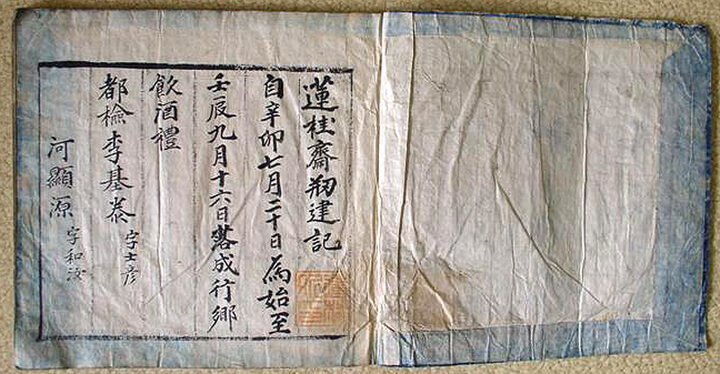 蓮桂齋刱建記
自辛卯七月二十日為始至
壬辰九月十六日落成行鄉
飲酒禮
都檢李基泰 字士彦
河顯源 字和汝